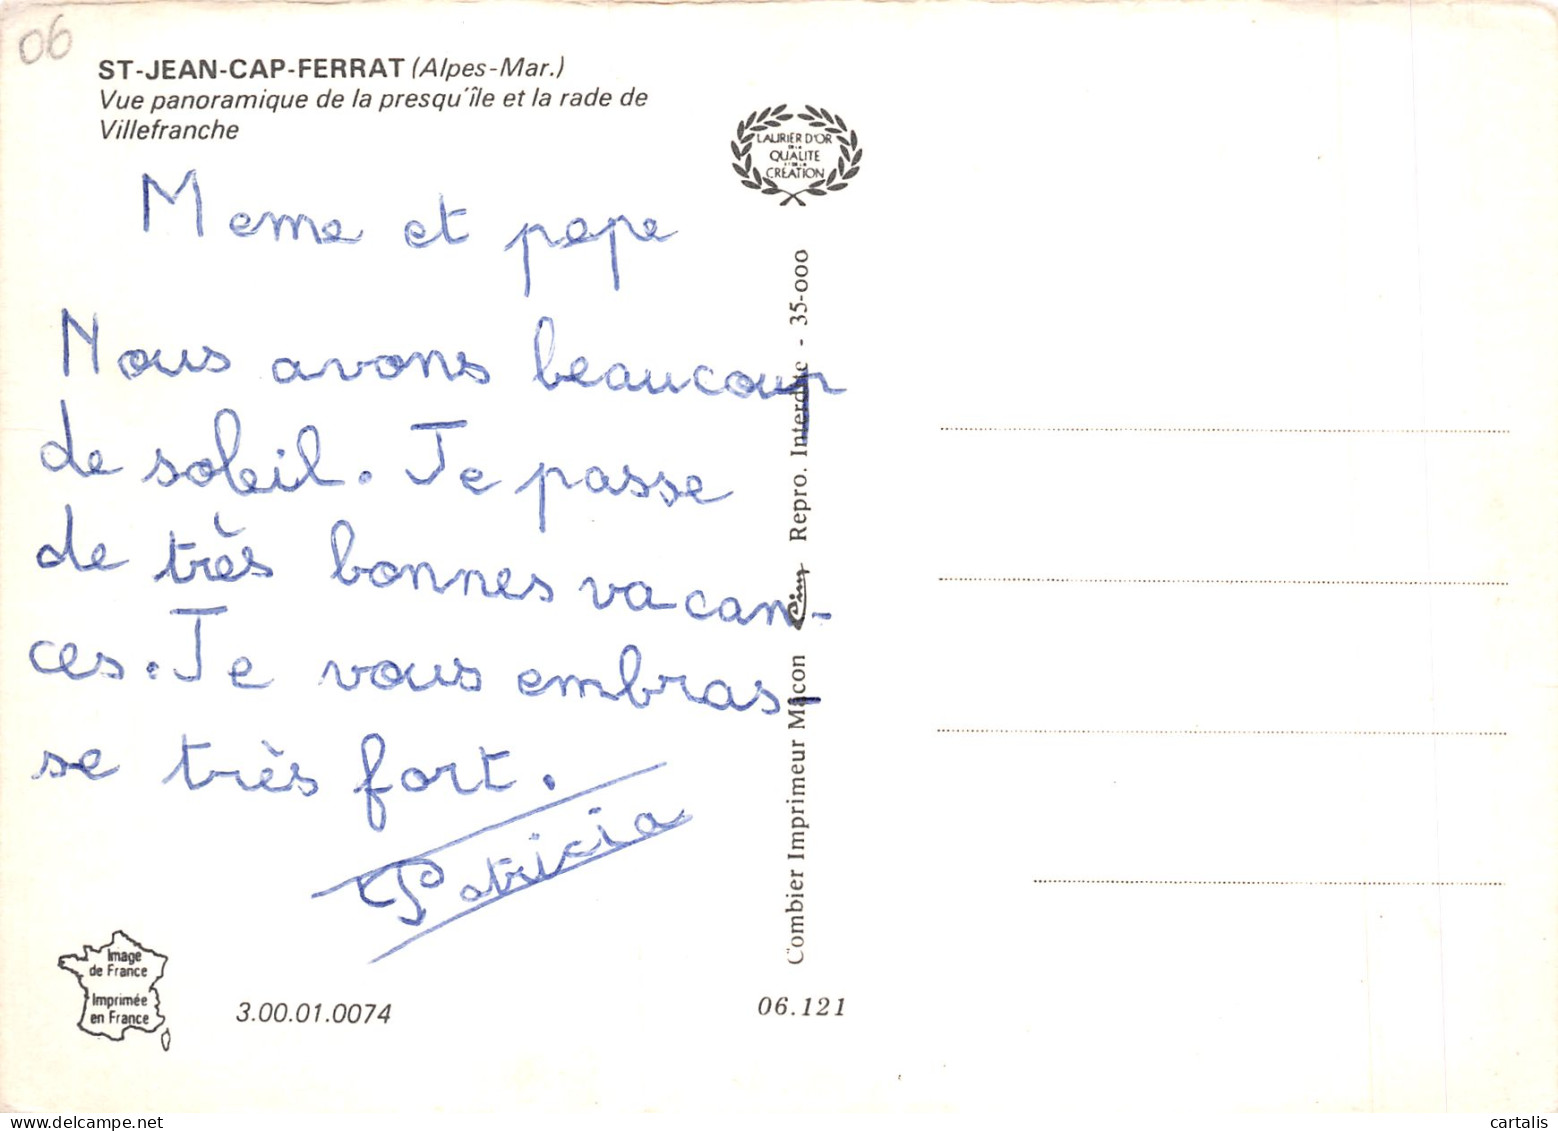 06
ST-JEAN-CAP-FERRAT (Alpes-Mar.)
Vue panoramique de la presqu'île et la rade de
Villefranche
Meme et pepe
Nous avons beaucoup
de soleil. Je passe
de très bonnes vacan-
ces. Je vous embras-
se très fort.
Patricia
LAURIER D'OR
DE LA
QUALITE
ET DE LA
CRÉATION
Combier Imprimeur Macon Cim Repro. Interdite - 35-000
Image
de France
Imprimée
en France
3.00.01.0074
06.121
cartalis